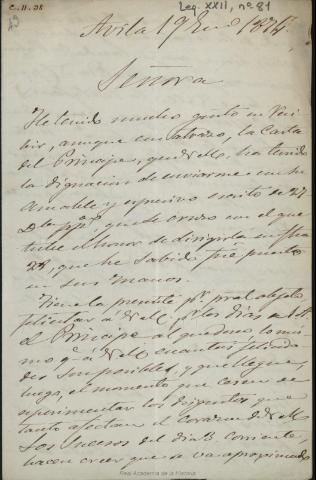 C-11-28
Leg. XXII, nº 81
Avila 19 En.º 1874
Señora
He tenido mucho gusto en reci
bir, aunque con atraso, la Carta
del Principe, que V. M. ha tenido
la dignacion de enviarme con su
amable y espresivo escrito de 24
que se cruzo con el que
tube el honor de dirigirla en fha
28, que he sabido fué puesto
en sus manos.
Tiene la presente por objeto
felicitar á V. M. por los dias de
el Principe al que deseo lo mis
mo que á V. M. cuantas felicida
des son posibles, y que llegue,
luego, el momento que cesen de
esperimentar los disgustos que
tanto afectan el Corazon de V. M.
Los sucesos del dia 3 corriente,
hacen creer que se va aproximando
Real Academia de la Historia